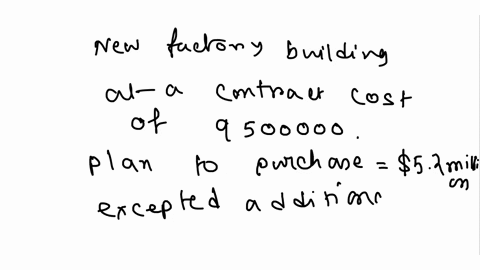 New factory building
at a contract cost
of 9500000.
plan to purchase = $5.2 million
excepted additions